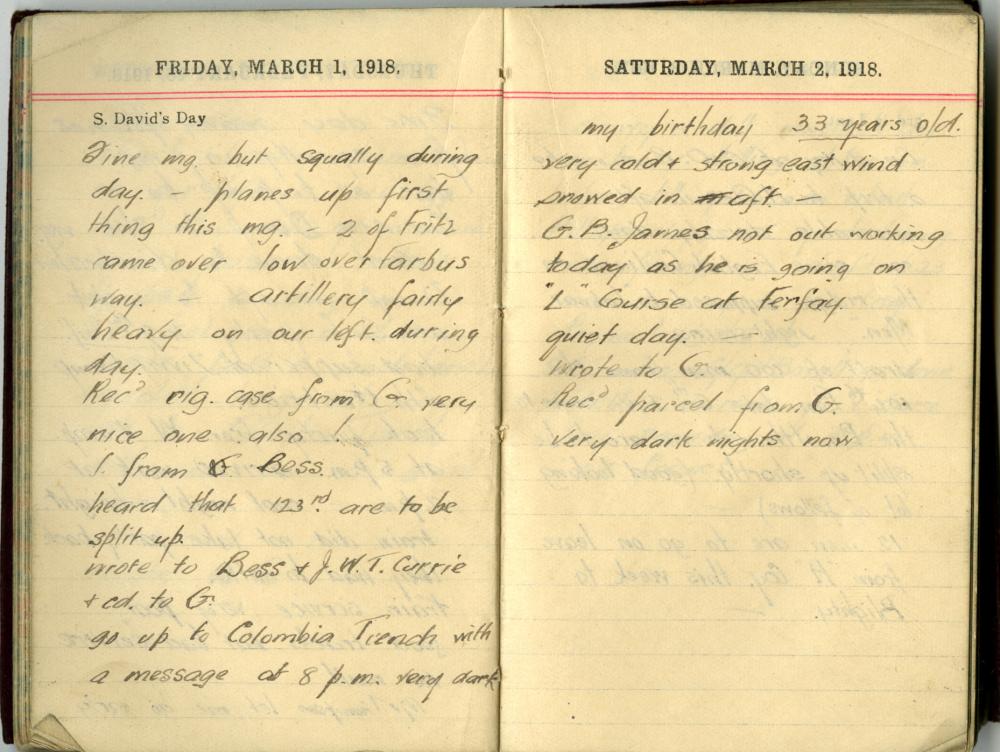 FRIDAY, MARCH 1, 1918.
S. David's Day
Fine mg. but squally during
day. – planes up first
thing this mg. – 2 of Fritz
came over low over Farbus
way. – artillery fairly
heavy on our left. during
day.
Rec'd cig. case from G very
nice one also
l. from G. Bess.
heard that 123rd are to be
split up.
wrote to Bess + J.W.T. Currie
+ cd. to G.
go up to Colombia Trench with
a message at 8 p.m. very dark
SATURDAY, MARCH 2, 1918.
my birthday 33 years old.
very cold + strong east wind
snowed in aft. –
G.B. James not out working
today as he is going on
"L" Course at Ferfay.
quiet day.
wrote to G.
Rec'd parcel from G.
very dark nights now